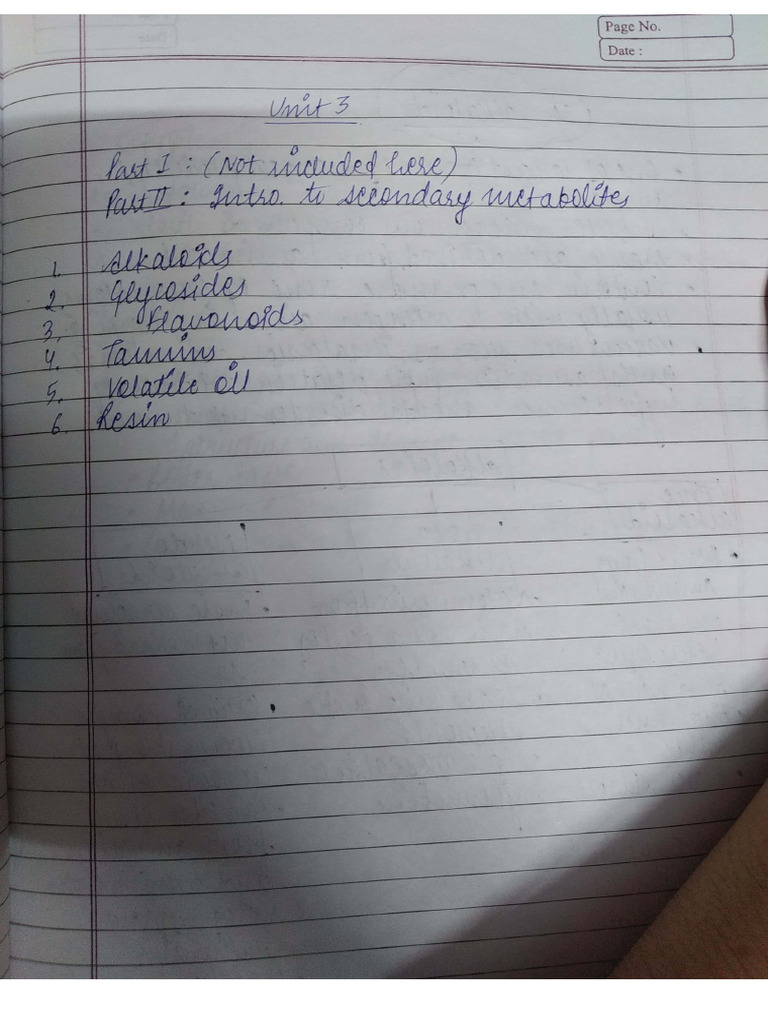 Page No.
Date :
Unit 3
Part I : (Not included here)
Part II : Intro. to secondary metabolites
1. Alkaloids
2. Glycosides
3. Flavonoids
4. Tannins
5. Volatile oil
6. Resin